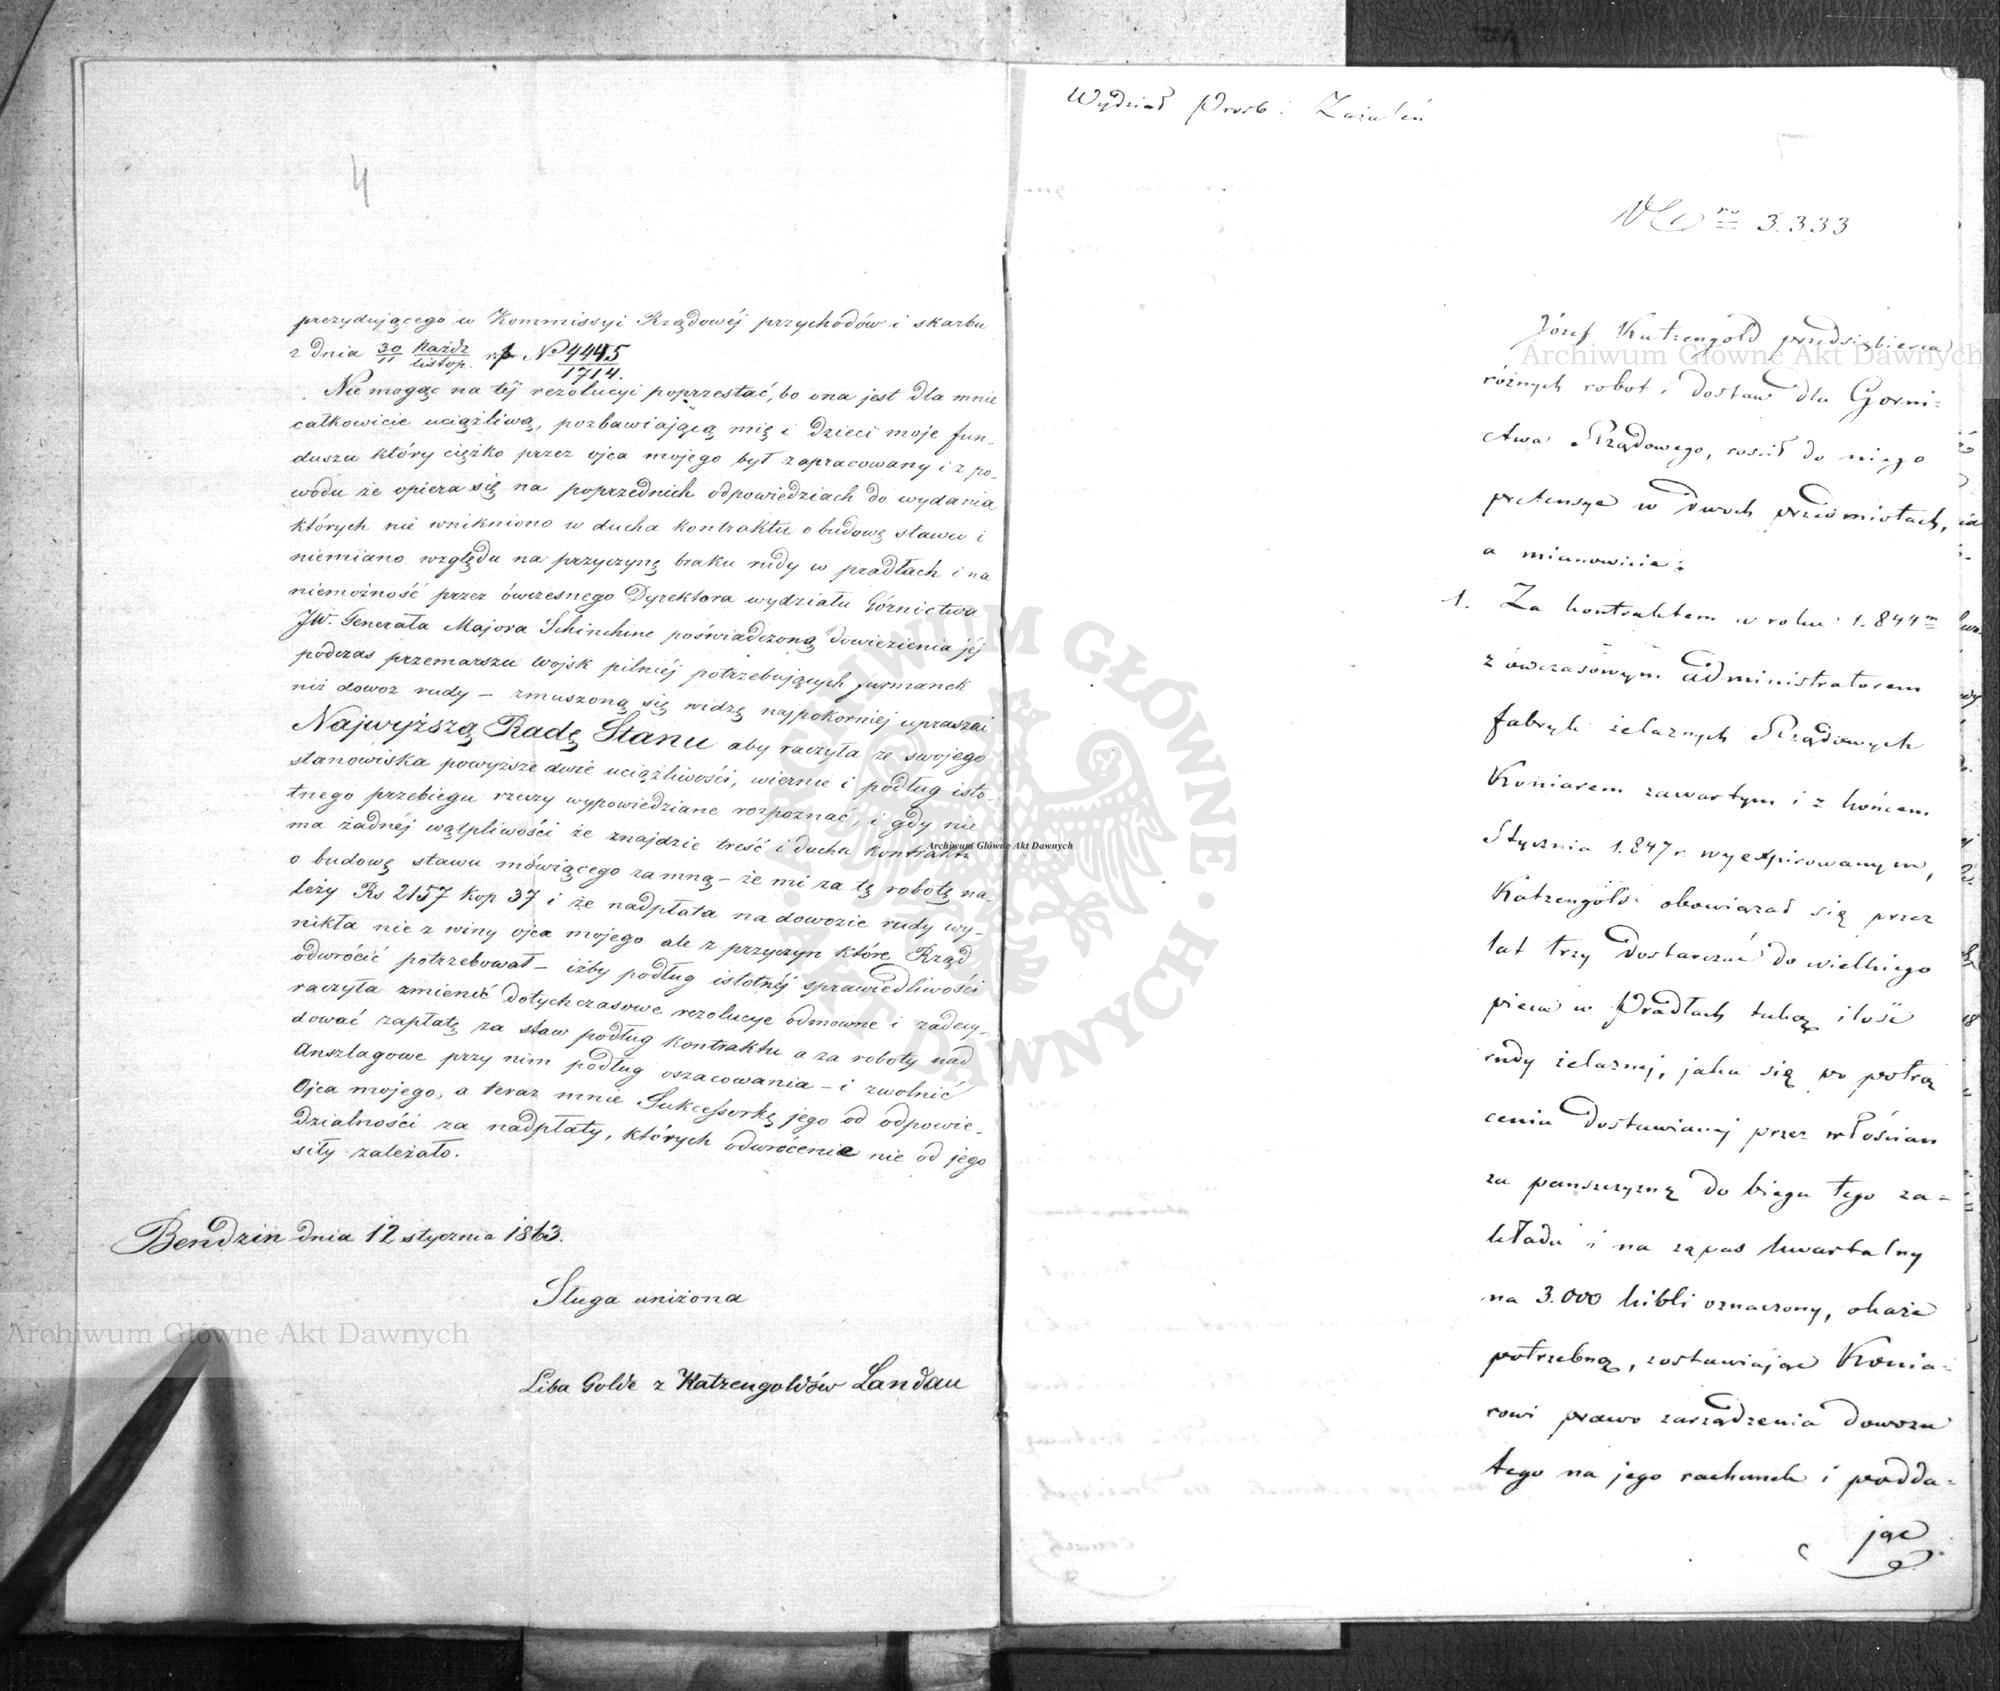 4
prezydującego w Kommissyi Rządowéj przychodów i skarbu
z dnia 30/11 Paźdz/listop. r b Nº 4445/1714.
Nie mogąc na téj rezolucyi poprzestać, bo ona jest dla mnie
całkowicie uciążliwą, pozbawiającą mię i dzieci moje fun-
duszu który ciężko przez ojca mojego był zapracowany i z po-
wodu że opiera się na poprzednich odpowiedziach do wydania
których nie wnikniono w ducha kontraktu o budowę stawu i
niemiano względu na przyczynę braku rudy w pradłach i na
niemożność przez ówczesnego Dyrektora wydziału Górnictwa
JW. Generała Majora Schinchine poświadczoną dowiezienia jéj
podczas przemarszu wojsk pilniéj potrzebujących furmanek
niż dowoz rudy – zmuszoną się widzę najpokorniéj upraszać
Najwyższą Radę Stanu aby raczyła ze swojego
stanowiska powyższe dwie uciążliwości, wiernie i podług isto-
tnego przebiegu rzeczy wypowiedziane rozpoznać, i gdy nie
ma żadnéj wątpliwości że znajdzie treść i ducha kontraktu
o budowę stawu mówiącego za mną – że mi za tę robotę na-
leży Rs 2157 kop 37 i że nadpłata na dowozie rudy wy-
nikła nie z winy ojca mojego ale z przyczyn które Rząd
odwrócić potrzebował – iżby podług istotnéj sprawiedliwości
raczyła zmienić dotychczasowe rezolucye odmowne i zadecy-
dować zapłatę za staw podług kontraktu a za roboty nad
Anszlagowe przy nim podług oszacowania – i zwolnić
Ojca mojego, a teraz mnie Sukcessorkę jego od odpowie-
dzialności za nadpłaty, których odwrócenie nie od jego
siły zależało.
Bendzin dnia 12 stycznia 1863.
Sługa uniżona
Liba Golde z Katzengoldów Landau
Wydział Prośb i Zażaleń
Nro 3.333
Józef Katzengold przedsiębierca
różnych robot i dostaw dla Gorni=
ctwa Rządowego, rościł do niego
pretensye w dwoch przedmiotach,
a mianowicie:
1. Za kontraktem w roku 1.844m
z ówczasowym administratorem
fabryk żelaznych Rządowych
Koniarem zawartym i z końcem
Stycznia 1.847 r. wyexpirowanym,
Katzengold obowiązał się przez
lat trzy dostarczać do wielkiego
pieca w Pradłach taką ilość
rudy żelaznej, jaka się po potrą
ceniu dostawianej przez włościan
za pańszczyznę do biegu tego za=
kładu i na zapas kwartalny
na 3.000 kibli oznaczony, okaże
potrzebną, zostawiając Konia=
rowi prawo zarządzenia dowozu
tego na jego rachunek i podda=
jąc
Archiwum Główne Akt Dawnych
Archiwum Główne Akt Dawnych
Archiwum Główne Akt Dawnych
ARCHIWUM GŁÓWNE AKT DAWNYCH